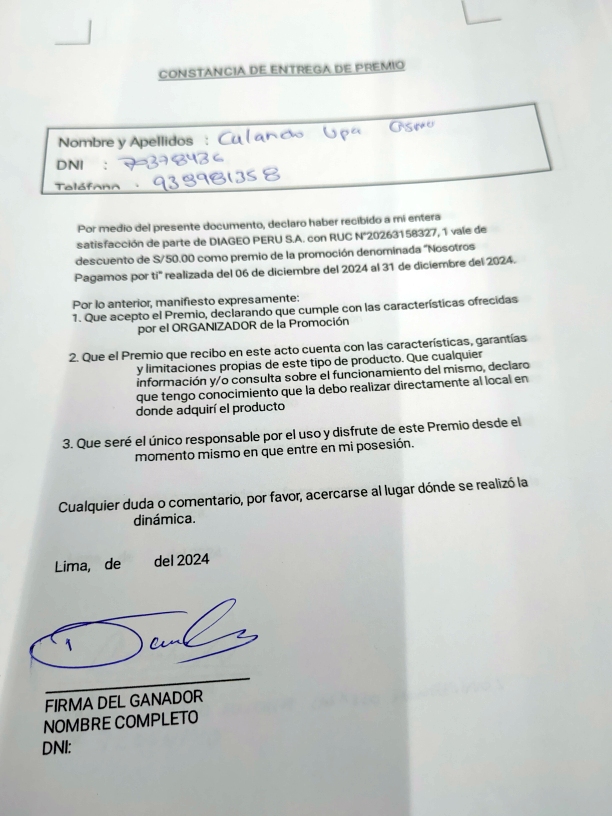 CONSTANCIA DE ENTREGA DE PREMIO
Nombre y Apellidos : Calando Upa
DNI : 73378436
Teléfono : 938981358
Por medio del presente documento, declaro haber recibido a mi entera
satisfacción de parte de DIAGEO PERU S.A. con RUC N°20263158327, 1 vale de
descuento de S/50.00 como premio de la promoción denominada "Nosotros
Pagamos por ti" realizada del 06 de diciembre del 2024 al 31 de diciembre del 2024.
Por lo anterior, manifiesto expresamente:
1. Que acepto el Premio, declarando que cumple con las características ofrecidas
por el ORGANIZADOR de la Promoción
2. Que el Premio que recibo en este acto cuenta con las características, garantías
y limitaciones propias de este tipo de producto. Que cualquier
información y/o consulta sobre el funcionamiento del mismo, declaro
que tengo conocimiento que la debo realizar directamente al local en
donde adquirí el producto
3. Que seré el único responsable por el uso y disfrute de este Premio desde el
momento mismo en que entre en mi posesión.
Cualquier duda o comentario, por favor, acercarse al lugar dónde se realizó la
dinámica.
Lima, de del 2024
FIRMA DEL GANADOR
NOMBRE COMPLETO
DNI: